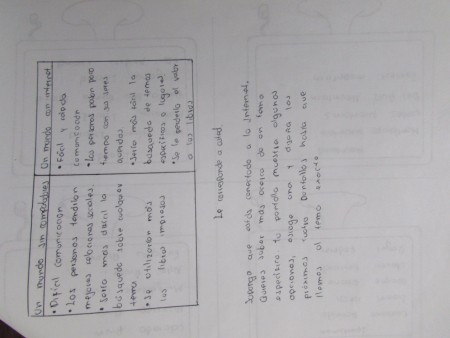 Un mundo sin computadores
• Difícil comunicación.
• Las personas tendrían
mejores relaciones sociales.
• Sería más difícil la
búsqueda sobre cualquier
tema
• Se utilizarían más
los libros impresos
Un mundo con internet
• Fácil y rápida
comunicación
• Las personas pasan poco
tiempo con sus seres
queridos
• Sería más fácil la
búsqueda de temas
específicos o lugares
• Se le perdería el valor
a los libros
Le corresponde a usted.
Suponga que está conectado a la Internet.
Quieres saber más acerca de un tema
específico tu pantalla muestra algunas
opciones, escoge una y diseña las
próximas cuatro pantallas hasta que
llemos al tema exacto